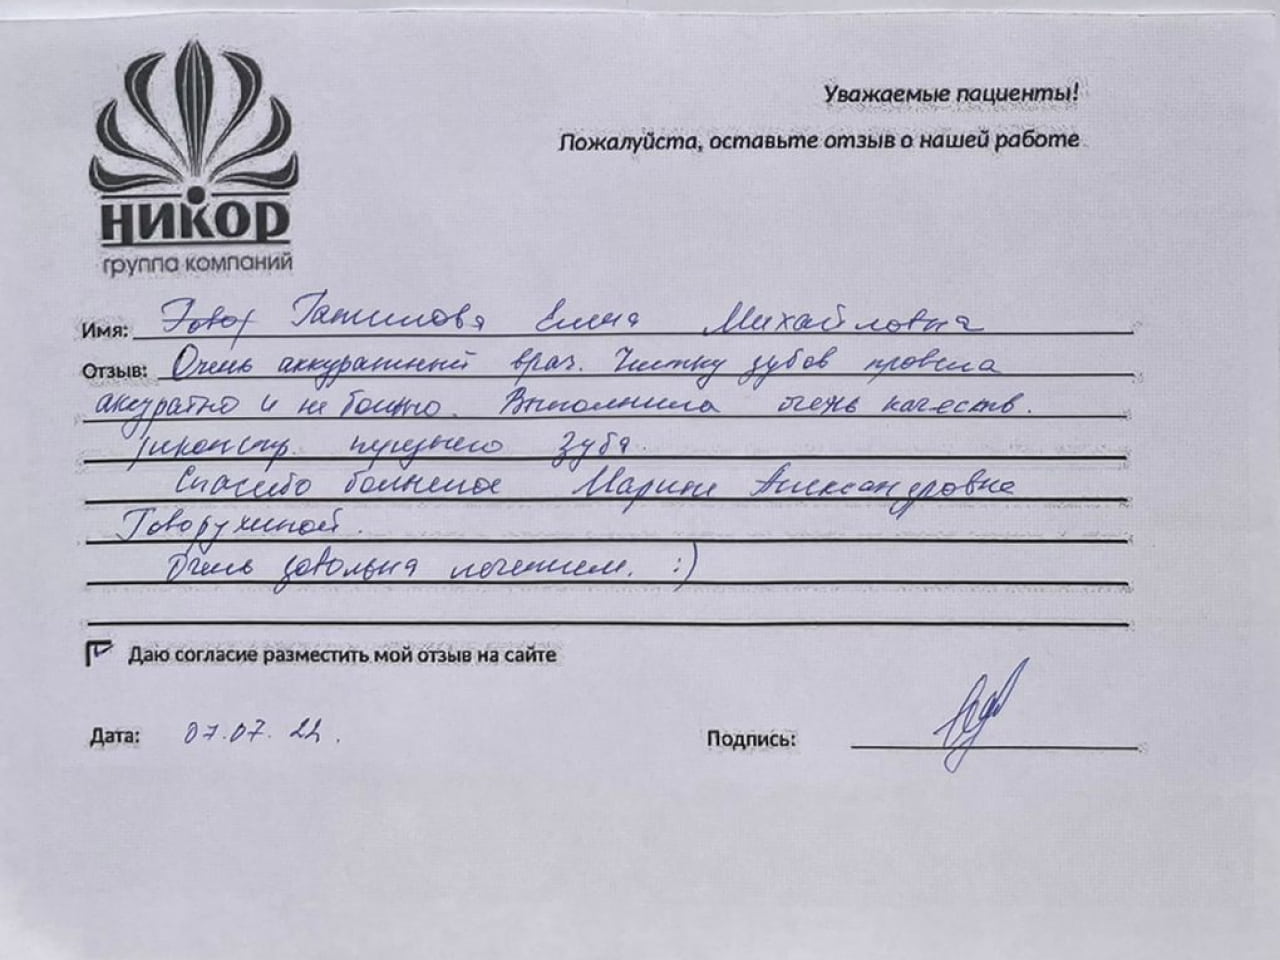 НИКОР
группа компаний
Уважаемые пациенты!
Пожалуйста, оставьте отзыв о нашей работе
Имя: Елена Михайловна
Отзыв: Очень аккуратный врач. Чистку зубов провела
аккуратно и не больно. Выполнила очень качеств.
зуба.
Спасибо большое Марине Александровне
Говорухиной.
Очень довольна лечением. :)
Даю согласие разместить мой отзыв на сайте
Дата: 07.07.22.
Подпись: